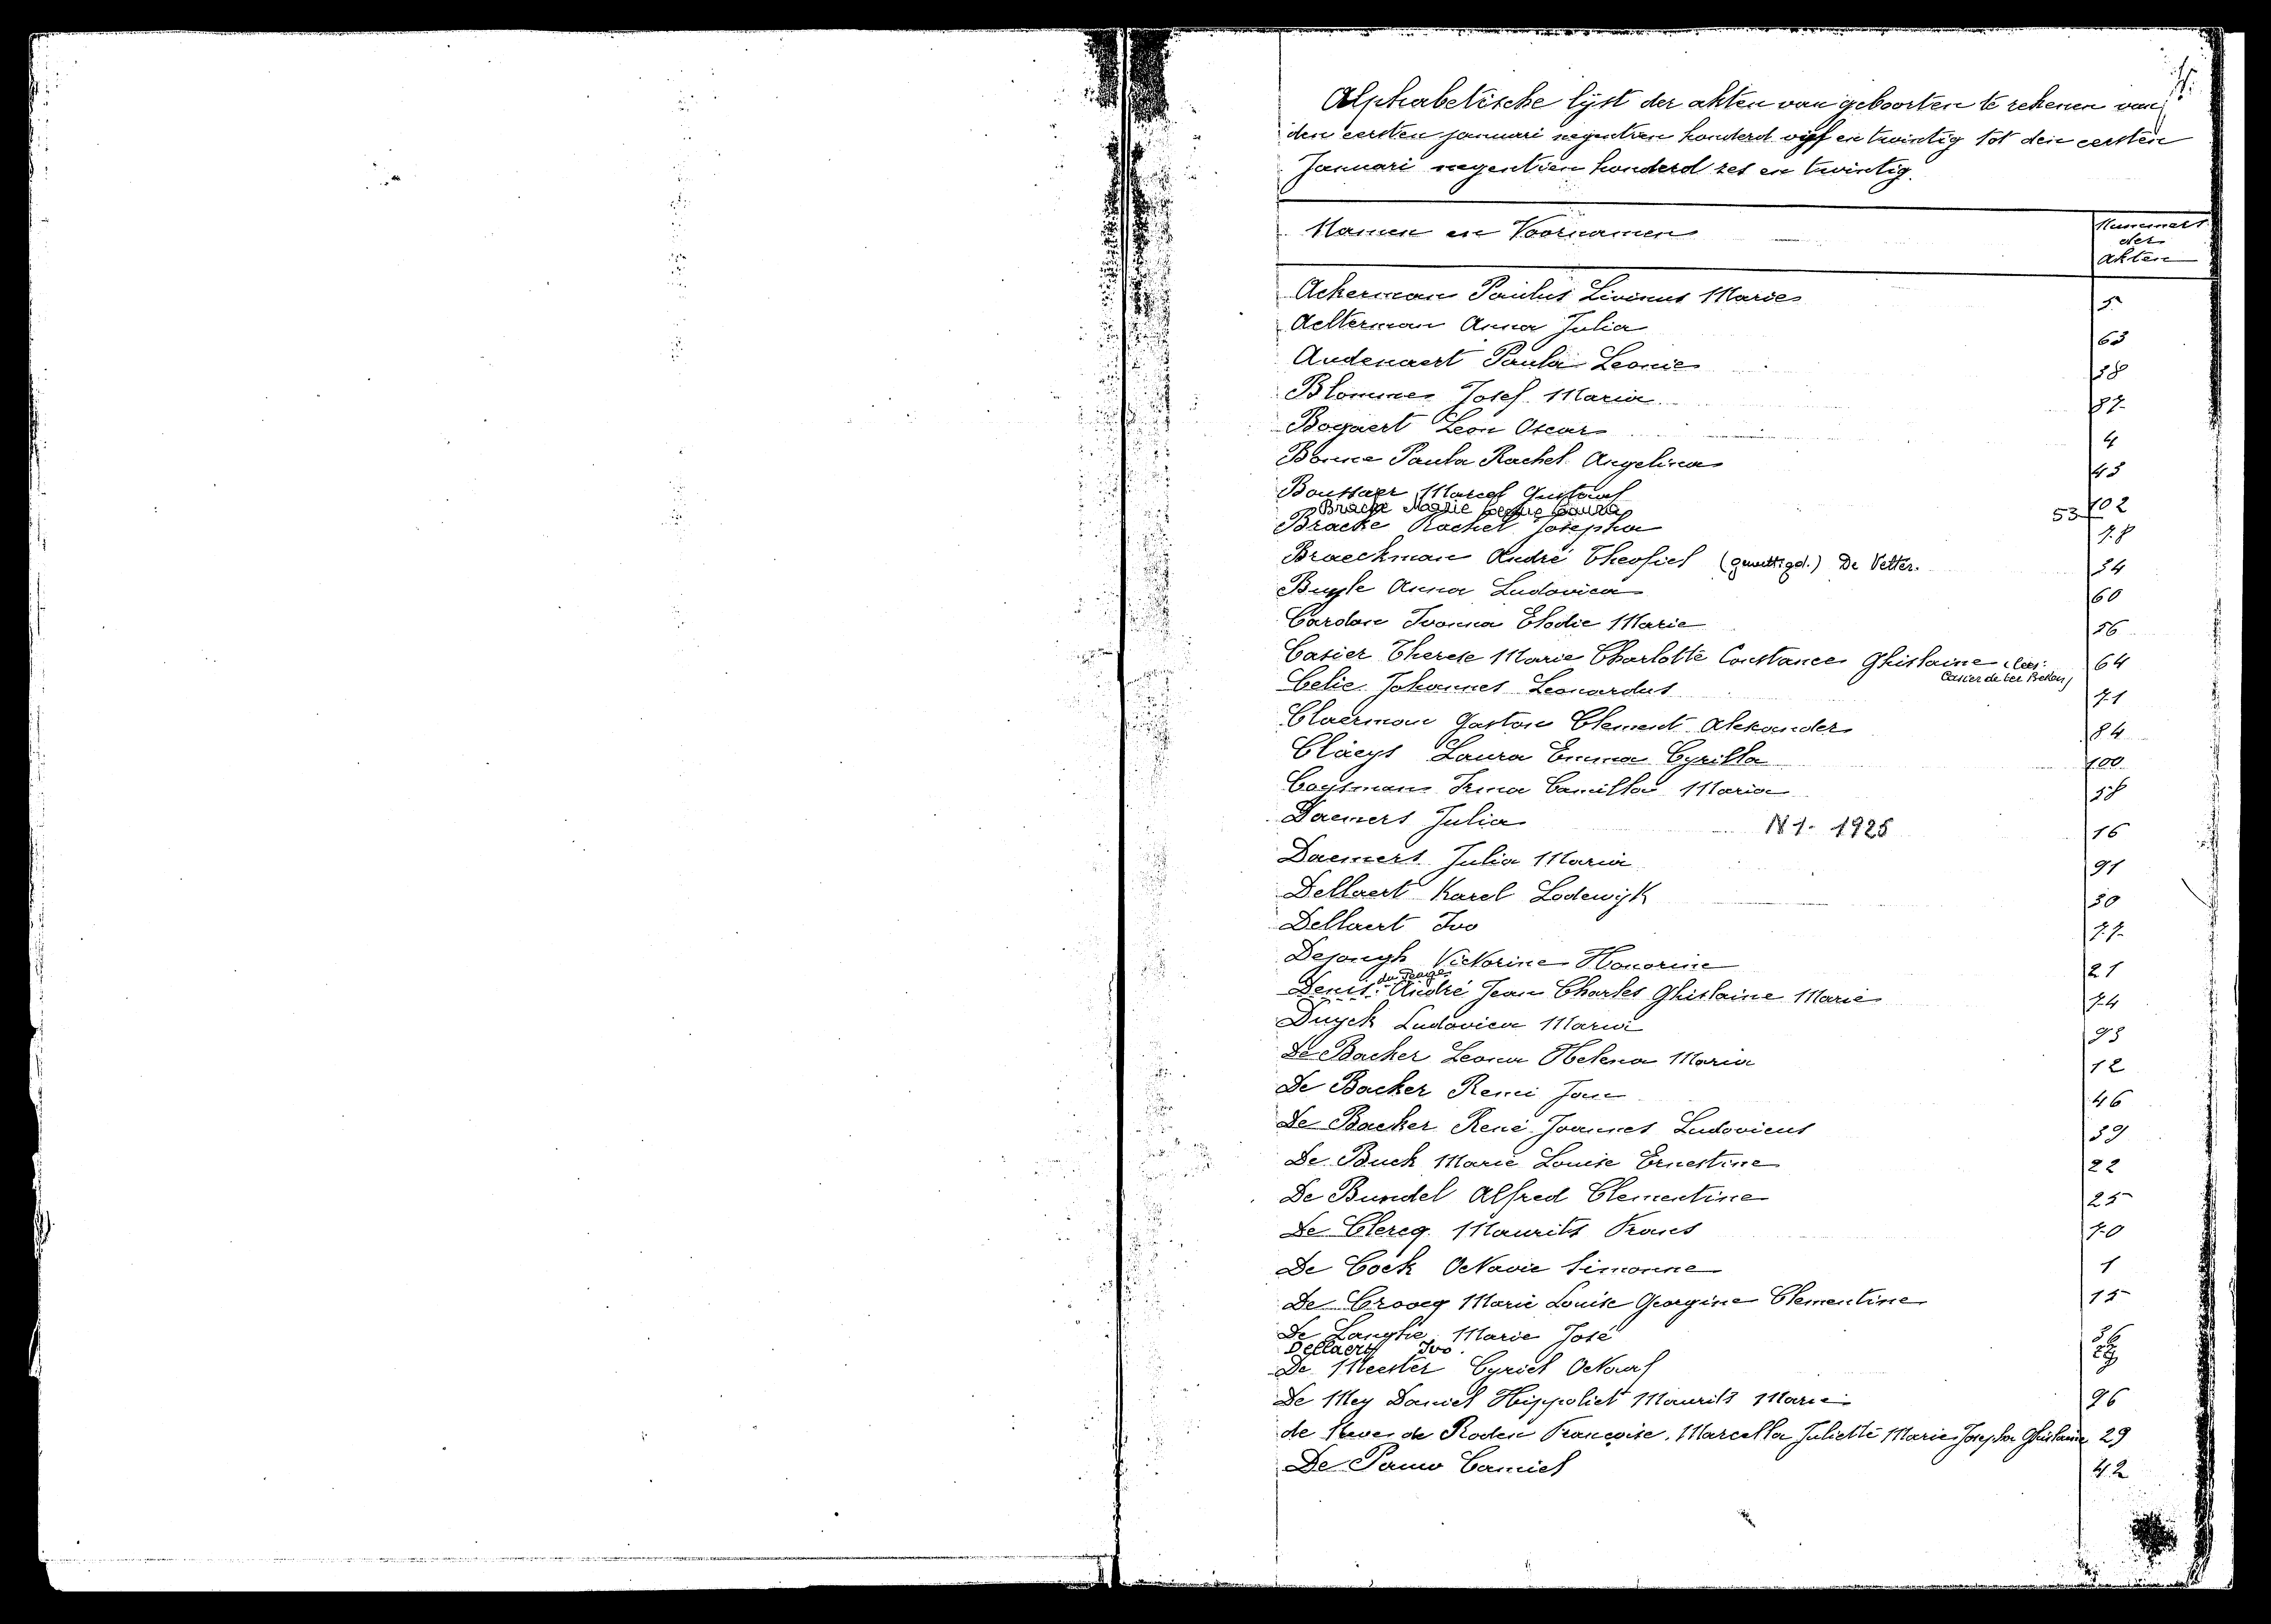 Alphabetische lijst der akten van geboorten te rekenen van
den eersten januari negentien honderd vijf en twintig tot den eersten
Januari negentien honderd zes en twintig.
Namen en Voornamen
Nummers
der
akten
Ackerman Paulus Livinus Marie 5
Aelterman Anna Julia 63
Audenaert Paula Leonie 38
Blomme Josef Maria 87
Bogaert Leon Oscar 4
Bonne Paula Rachel Angelina 43
Boussaer Marcel Gustaaf 102
Bracke Marie Laura 53
Bracke Rachel Josepha 78
Braeckman André Theofiel (gewettigd.) De Vetter. 34
Buyle Anna Ludovica 60
Cardon Ivonna Elodie Marie 56
Casier Therese Marie Charlotte Constance Ghislaine (lees: 64
Casier de ter Beken)
Celie Johannes Leonardus 71
Claerman Gaston Clement Alexander 84
Claeys Laura Emma Cyrilla 100
Coysman Irma Camilla Maria 58
Daemers Julia N 1 - 1925 16
Daemers Julia Maria 91
Dellaert Karel Lodewijk 30
Dellaert Ivo 77
Dejongh Victorine Honorine 21
du Péage
Denis André Jean Charles Ghislaine Marie 74
Duyck Ludovica Maria 93
De Backer Leona Helena Maria 12
De Backer Remi Jan 46
De Backer René Joannes Ludovicus 39
De Buck Marie Louise Ernestine 22
De Bundel Alfred Clementine 25
De Clercq Maurits Frans 70
De Cock Octavie Simonne 1
De Croocq Marie Louise Georgine Clementine 15
De Langhe Marie José 36
Dellaert Ivo
De Meester Cyriel Octaaf
De Mey Daniel Hippoliet Maurits Marie 96
de Neve de Roden Françoise Marcella Juliette Marie Josepha Ghislaine 29
De Pauw Camiel 42